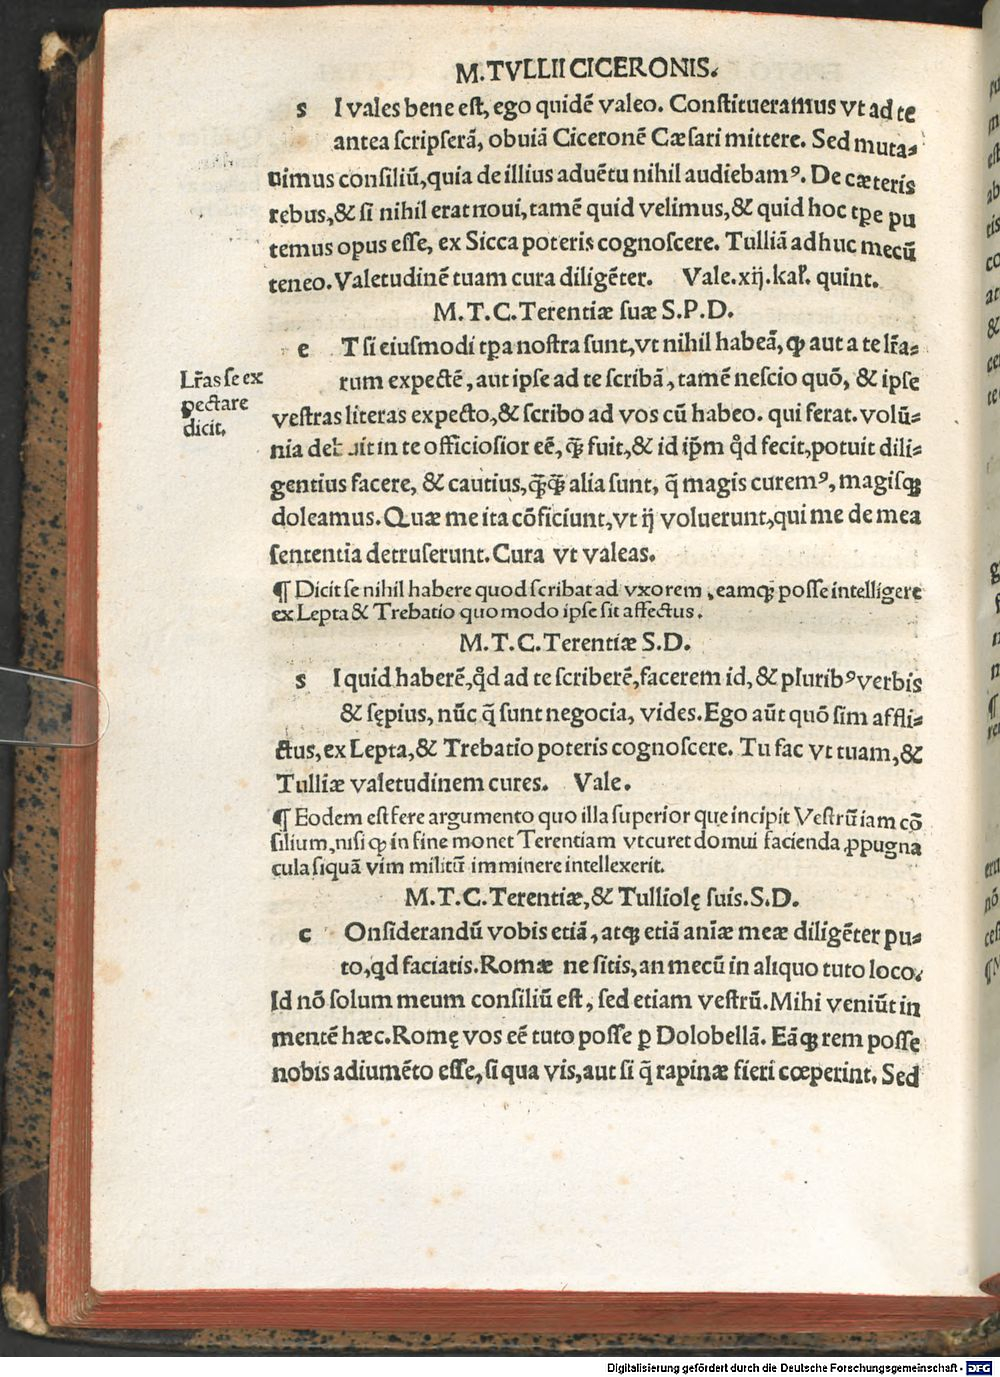 M.TVLLII CICERONIS.
s I vales bene est, ego quidē valeo. Constitueramus vt ad te
antea scripserā, obuiā Ciceronē Cæsari mittere. Sed muta⸗
uimus consiliū,quia de illius aduētu nihil audiebamꝰ. De cæteris
rebus,& si nihil erat noui,tamē quid velimus,& quid hoc tpe pu
temus opus esse, ex Sicca poteris cognoscere. Tulliā adhuc mecū
teneo. Valetudinē tuam cura diligēter. Vale.xij.kal. quint.
M.T.C.Terentiæ suæ S.P.D.
e T si eiusmodi tpa nostra sunt,vt nihil habeā, ꝙ aut a te lr̄a⸗
Lr̄as se ex
pectare
dicit.
rum expectē, aut ipse ad te scribā, tamē nescio quō, & ipse
vestras literas expecto,& scribo ad vos cū habeo. qui ferat. volū⸗
nia debuit in te officiosior eē, ꝙ̄ fuit,& id ip̄m qd̄ fecit,potuit dili⸗
gentius facere, & cautius,ꝙ̄ꝙ̄ alia sunt, q̄ magis curemꝰ, magisqꝫ
doleamus. Quæ me ita cōficiunt,vt ij voluerunt,qui me de mea
sententia detruserunt. Cura vt valeas.
¶ Dicit se nihil habere quod scribat ad vxorem, eamqꝫ posse intelligere
ex Lepta & Trebatio quo modo ipse sit affectus.
M.T.C.Terentiæ S.D.
s I quid haberē,qd̄ ad te scriberē,facerem id, & pluribꝰ verbis
& sępius, nūc q̄ sunt negocia, vides. Ego aūt quō sim affli⸗
ctus, ex Lepta,& Trebatio poteris cognoscere. Tu fac vt tuam,&
Tulliæ valetudinem cures. Vale.
¶ Eodem est fere argumento quo illa superior que incipit Vestrū iam cō
silium,nisi ꝙ in fine monet Terentiam vt curet domui facienda ꝓpugna
cula siquā vim militū imminere intellexerit.
M.T.C.Terentiæ,& Tulliolę suis.S.D.
c Onsiderandū vobis etiā, atqꝫ etiā aniæ meæ diligēter pu⸗
to,qd faciatis. Romæ ne sitis,an mecū in aliquo tuto loco.
Id nō solum meum consiliū est, sed etiam vestrū. Mihi veniūt in
mentē hæc. Romę vos eē tuto posse ꝑ Dolobellā. Eāqꝫ rem posse
nobis adiumēto esse,si qua vis,aut si q̄ rapinæ fieri cœperint. Sed
Digitalisierung gefördert durch die Deutsche Forschungsgemeinschaft - DFG